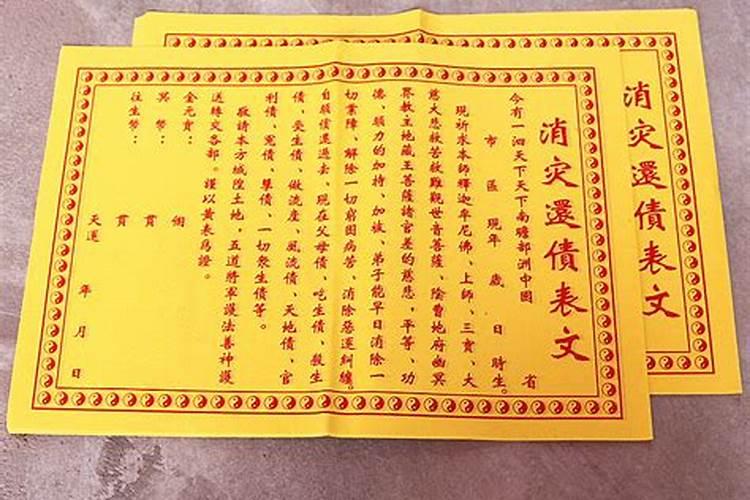 消灾還債表文
今有一泗天下天下南贍部洲中國 省
市 區 現年 歲 日 時生。
現祈求本師釋迦牟尼佛、上師、三寶、大
慈大悲救苦救難觀世音菩薩、陰曹地府幽冥
界教主地藏王菩薩諸官差的慈悲，平等、功
德、願力的加持、加被、弟子能早日消除一
切業障、解除一切窮困病苦、消除惡運糾纏。
自願償還過去、現在父母債、吃生債、殺生
債、受生債、做流産、風流債、天地債、官
利債、冤債、孽債、一切衆生債等。
敬請本方城隍土地，五道將軍護法善神護
送轉交各部。謹以黃表爲證。
金元寶： 個
冥幣： 貫
往生幣： 貫
天運 年 月 日
消灾還債表文